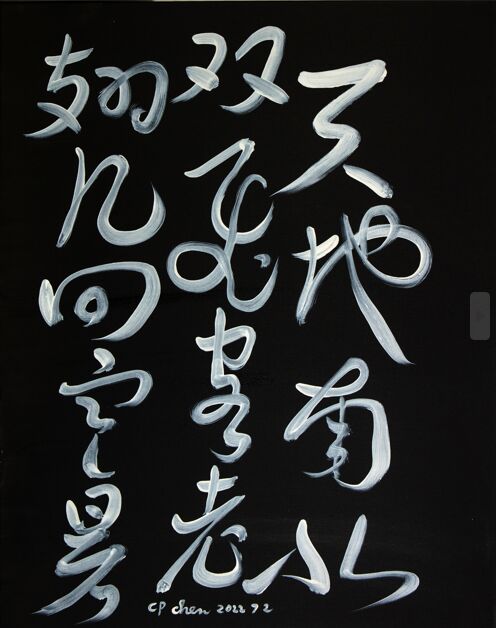 天地南北
双飞客老
翅几回寒暑
CP chen 2022 9 2